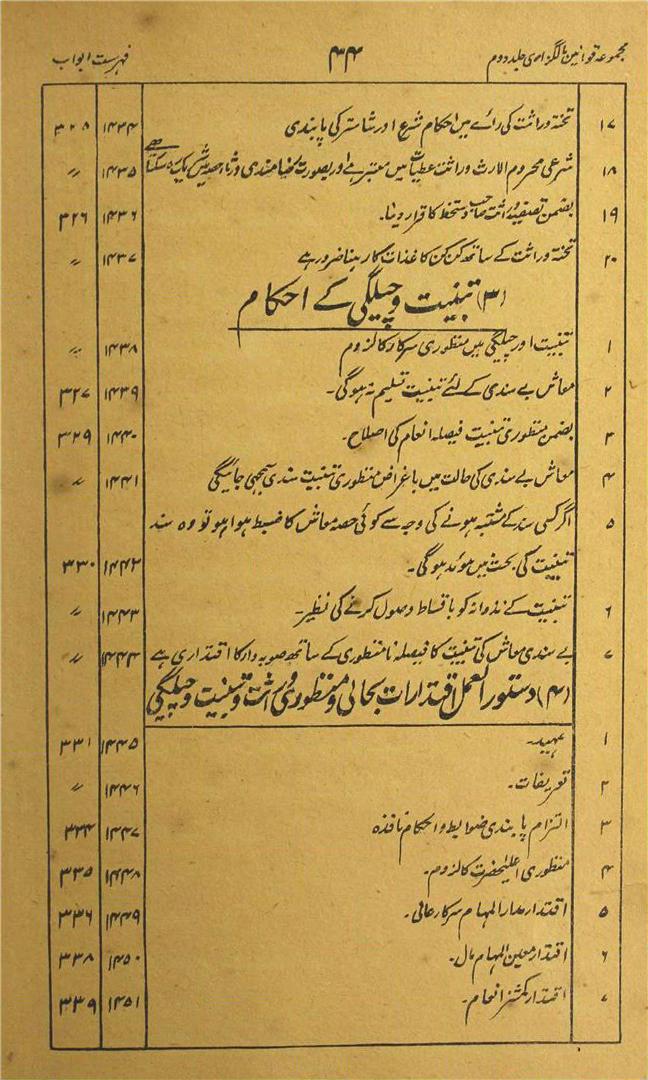 مجموعہ قوانین مالگزاری جلد دوم ۴۴ فہرست ابواب
۱۷ تختہ وراثت کی رائے میں احکام شرع اور شاستر کی پابندی ۱۴۳۴ ۳۲۵
۱۸ شرعی محروم الارث وراثت عطیات میں معتبر ہے اور بصورت رضامندی ورثاء حصہ ۱۴۳۵ 〃
۱۹ بضمن تصفیہ وراثت صاحب دستخط کا قرار دینا۔ ۱۴۳۶ ۳۲۶
۲۰ تختہ وراثت کے ساتھ کن کن کاغذات کا رہنا ضرور ہے ۱۴۳۷ 〃
(۳) تبنیت و چیلگی کے احکام
۱ تبنیت اور چیلگی میں منظوری سرکار کا لزوم ۱۴۳۸ 〃
۲ معاش بے سندی کے لئے تبنیت تسلیم نہ ہوگی۔ ۱۴۳۹ ۳۲۷
۳ بضمن منظوری تبنیت فیصلہ انعام کی اصلاح۔ ۱۴۴۰ ۳۲۹
۴ معاش بے سندی کی حالت میں باغراض منظوری تبنیت سندی سمجھی جائیگی ۱۴۴۱ 〃
۵ اگر کسی سند کے مشتبہ ہونے کی وجہ سے کوئی حصہ معاش کا ضبط ہوا ہو تو وہ سند
تبنیت کی بحث میں موئد ہوگی۔ ۱۴۴۲ ۳۳۰
۶ تبنیت کے نذرانہ کو باقساط وصول کرنے کی نظیر۔ ۱۴۴۳ 〃
۷ بے سندی معاش کی تبنیت کا فیصلہ نامنظوری کے ساتھ صوبہ دار کا اقتداری ہے ۱۴۴۴ 〃
(۴) دستور العمل اقتدارات بحالی و منظوری وراثت و تبنیت و چیلگی
۱ تمہید۔ ۱۴۴۵ ۳۳۱
۲ تعریفات۔ ۱۴۴۶ 〃
۳ التزام پابندی ضوابط و احکام نافذہ ۱۴۴۷ ۳۳۴
۴ منظوری اعلیٰحضرت کا لزوم۔ ۱۴۴۸ ۳۳۵
۵ اقتدار مدارالمہام سرکار عالی۔ ۱۴۴۹ ۳۳۶
۶ اقتدار معین المہام مال۔ ۱۴۵۰ ۳۳۸
۷ اقتدار کمشنر انعام۔ ۱۴۵۱ ۳۳۹